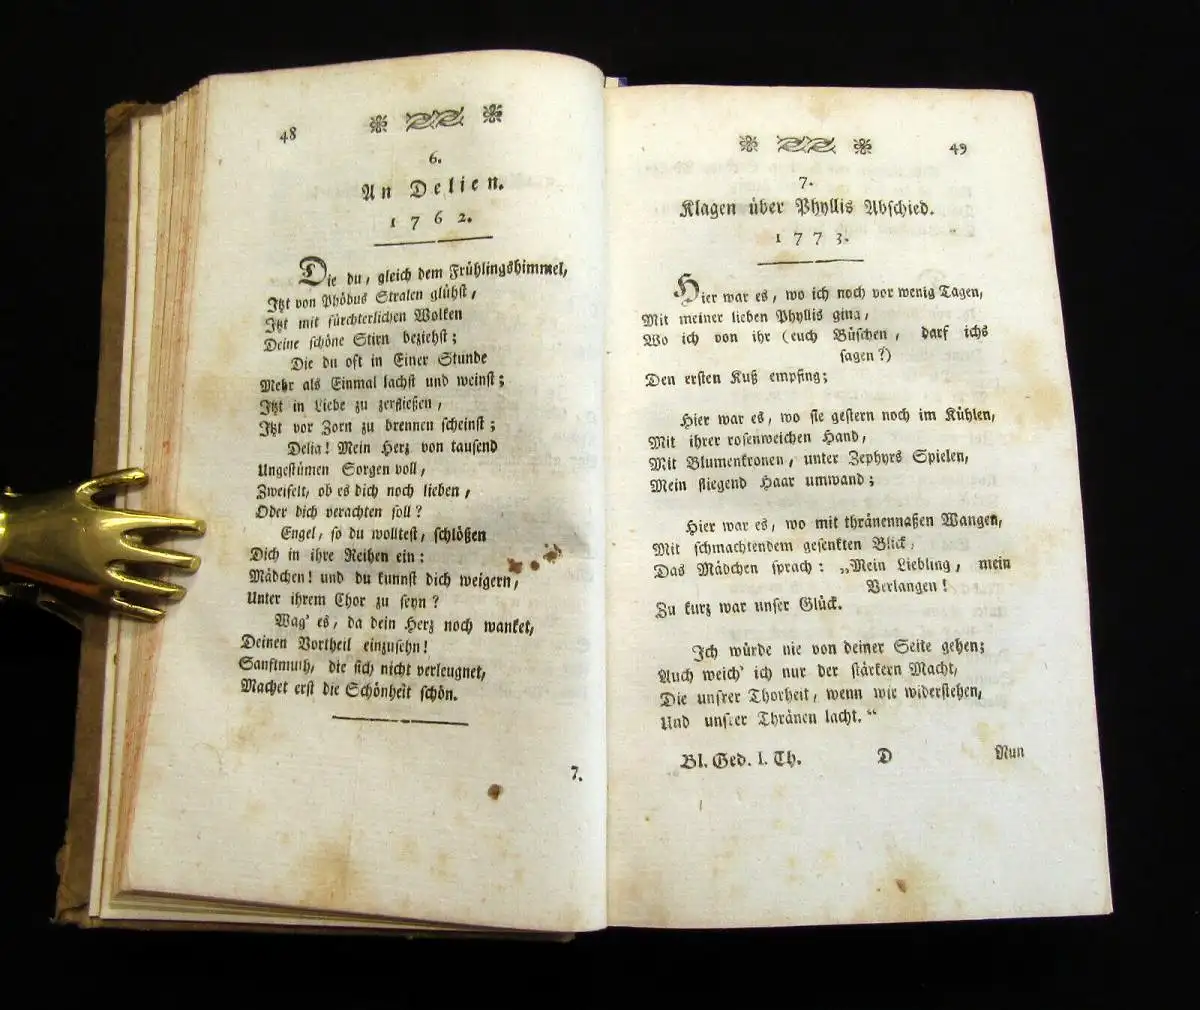 48
6.
An Delien.
1762.
Die du, gleich dem Frühlingshimmel,
Jtzt von Phöbus Stralen glühst,
Jtzt mit fürchterlichen Wolken
Deine schöne Stirn beziehst;
Die du oft in Einer Stunde
Mehr als Einmal lachst und weinst;
Jtzt in Liebe zu zerfließen,
Jtzt vor Zorn zu brennen scheinst;
Delia! Mein Herz von tausend
Ungestümen Sorgen voll,
Zweifelt, ob es dich noch lieben,
Oder dich verachten soll?
Engel, so du wolltest, schlößen
Dich in ihre Reihen ein:
Mädchen! und du kannst dich weigern,
Unter ihrem Chor zu seyn?
Wag' es, da dein Herz noch wanket,
Deinen Vortheil einzusehn!
Sanftmuth, die sich nicht verleugnet,
Machet erst die Schönheit schön.
7.
49
7.
Klagen über Phyllis Abschied.
1773.
Hier war es, wo ich noch vor wenig Tagen,
Mit meiner lieben Phyllis ging,
Wo ich von ihr (euch Büschen, darf ichs
sagen?)
Den ersten Kuß empfing;
Hier war es, wo sie gestern noch im Kühlen,
Mit ihrer rosenweichen Hand,
Mit Blumenkronen, unter Zephyrs Spielen,
Mein fliegend Haar umwand;
Hier war es, wo mit thränennaßen Wangen,
Mit schmachtendem gesenkten Blick,
Das Mädchen sprach: „Mein Liebling, mein
Verlangen!
Zu kurz war unser Glück.
Jch würde nie von deiner Seite gehen;
Auch weich' ich nur der stärkern Macht,
Die unsrer Thorheit, wenn wir widerstehen,
Und unsrer Thränen lacht.“
Bl. Ged. I. Th. D Nun